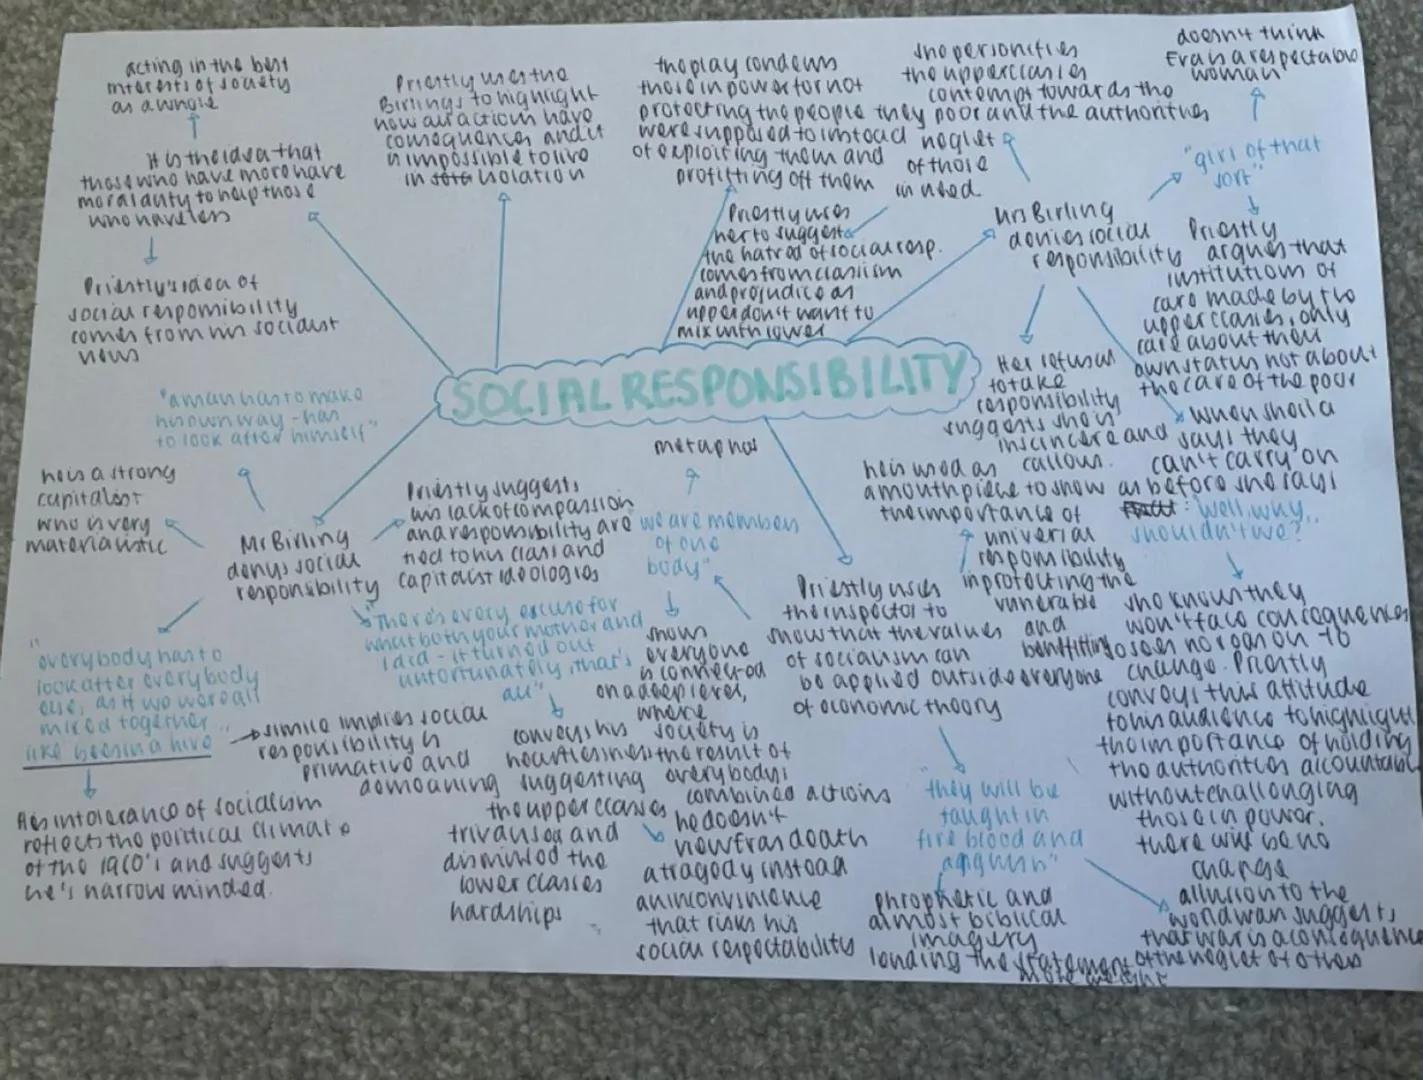 acting in the best
interests of society
as a whole
It is the idea that
those who have more have
moral duty to help those
who have less
Priestly's idea of
social responsibility
comes from his socialist
views
Priestly uses the
Birlings to highlight
how all actions have
consequences and it
is impossible to live
in isolation
the play condemns
those in power for not
protecting the people they
were supposed to instead
of exploiting them and
profitting off them
she personifies
the upper classes
contempt towards the
poor and the authorities
neglet
of those
in need
doesn't think
Eva is a respectable
woman
"girl of that
sort"
Priestly uses
her to suggest
the hatred of social resp.
comes from classism
and prejudice as
upper don't want to
mix with lower
Mrs Birling
denies social
responsibility
Priestly
argues that
institutions of
care made by the
upper classes, only
care about their
own status not about
the care of the poor
SOCIAL RESPONSIBILITY
Her refusal
to take
responsibility
suggests she is
insincere and
callous.
when sheila
says they
can't carry on
as before she says
: "well, why
shouldn't we?"
she knows they
won't face consequences
so sees no reason to
change. Priestly
conveys this attitude
to his audience to highlight
the importance of holding
the authorities accountable
without challenging
those in power.
there will be no
change
"a man has to make
his own way - has
to look after himself"
he is a strong
capitalist
who is very
materialistic
Mr Birling
denys social
responsibility
Priestly suggests
his lack of compassion
and responsibility are
tied to his class and
capitalist ideologies
"There's every excuse for
what both your mother and
I did - it turned out
unfortunately, that's
all"
conveys his
heartlessness
suggesting
the upper classes
trivansed and
dismissed the
lower classes
hardships
he doesn't
view Eva's death
a tragedy instead
an inconvinience
that risks his
social respectability
"everybody has to
look after everybody
else, as if we were all
mixed together
like bees in a hive"
simile implies social
responsibility is
primative and
demeaning
His intolerance of socialism
reflects the political climate
of the 1900's and suggests
he's narrow minded.
metaphor
"we are members
of one
body"
shows
everyone
is connected
on a deep level,
where
society is
the result of
everybody's
combined actions
Priestly uses
the inspector to
show that the values
of socialism can
be applied outside
of economic theory
he is used as
a mouthpiece to show
the importance of
universal
responsibility
in protecting the
vunerable
and
benifitting
everyone
"they will be
taught in
fire blood and
anguish"
phrophetic and
almost biblical
imagery
lending the statement
more weight
allusion to the
world wars suggests
that war is a consequence
of the neglect of others